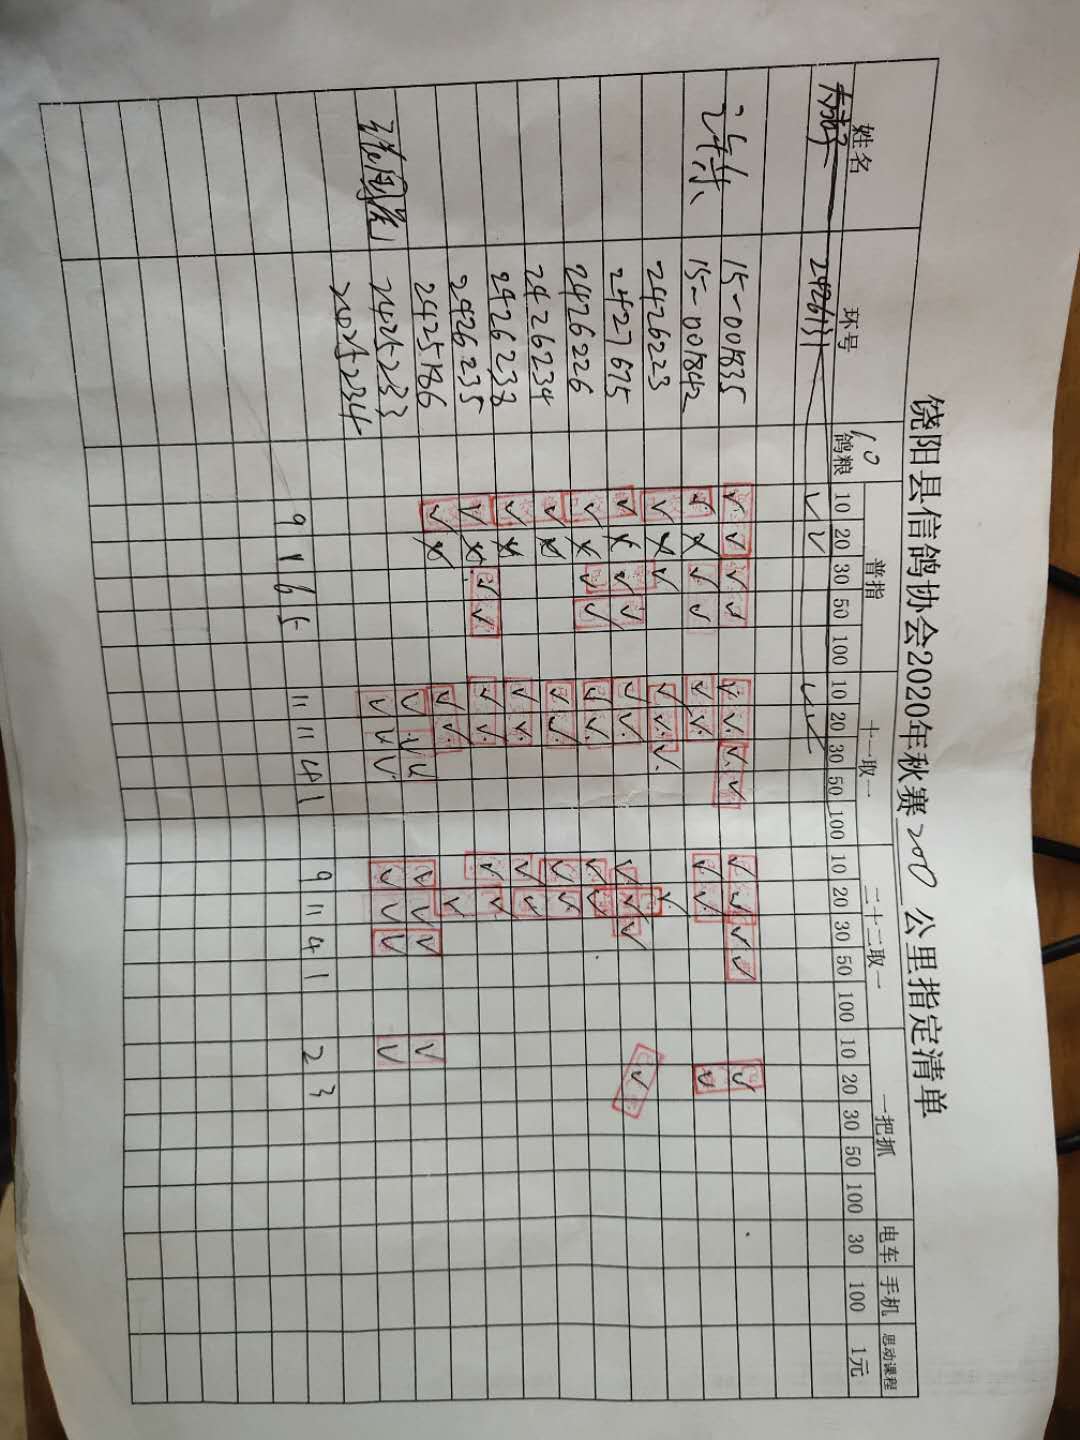 饶阳县信鸽协会2020年秋赛200公里指定清单
姓名 环号 鸽粮 普指 十一取一 二十二取一 一把抓 电车 手机 思动课程
10 20 30 50 100 10 20 30 50 100 10 20 30 50 100 10 20 30 50 100 30 100 1元
2426131 √ √ √ √
15-001835 √ √ √ √ √ √ √ √ √ √ √ √ √
15-001842
2426223
2427675
2426226
2426234
2426238
2426235
2425186
2425233
2425234
9 1 6 5 11 11 4 1 9 11 4 1 2 3